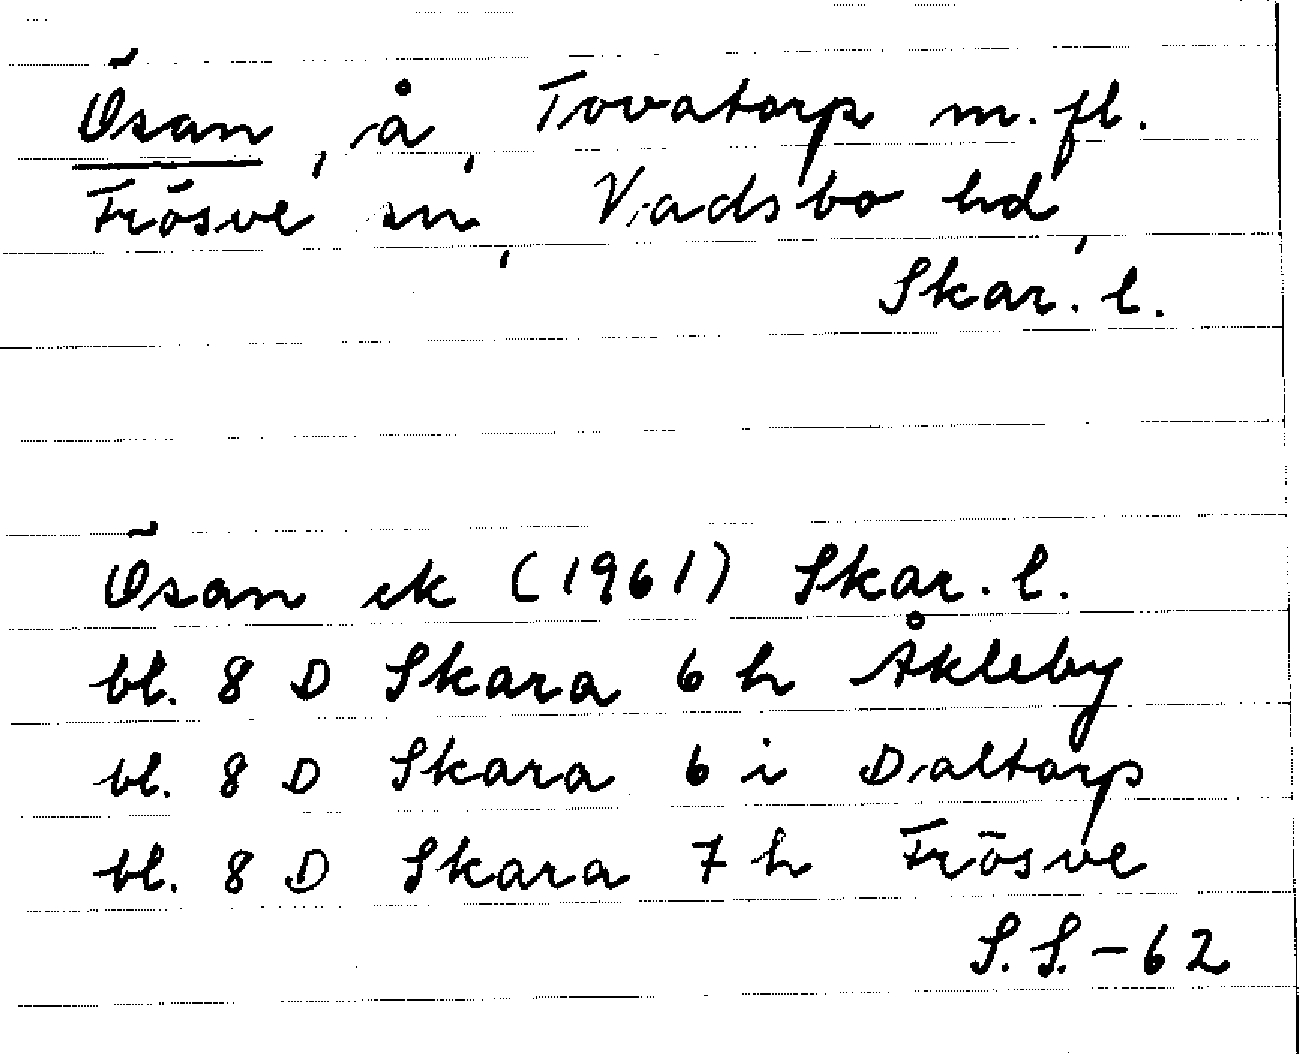 Ösan, å, Tovatorp m. fl.
Frösve sn, Vadsbo hd,
Skar. l.
Ösan ek (1961) Skar. l.
bl. 8 D Skara 6 h Åkleby
bl. 8 D Skara 6 i Daltorp
bl. 8 D Skara 7 h Frösve
S. S. - 62